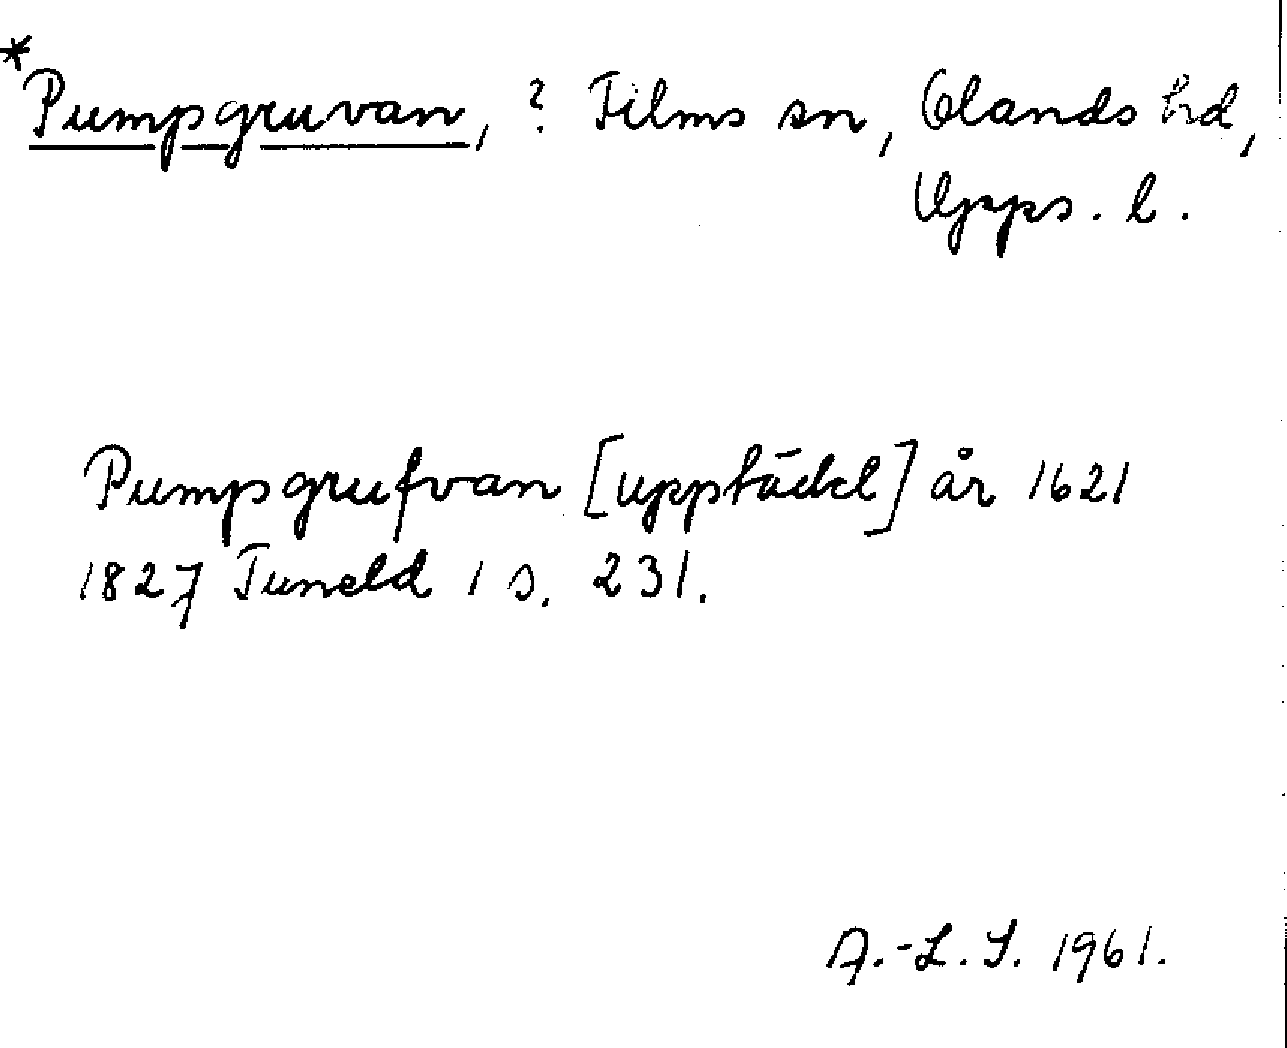 *Pumpgruvan, ? Films sn, Olands hd,
Upps. l.
Pumpgrufvan [upptäckt] år 1621
1827 Tuneld 1 s. 231.
A.-L. S. 1961.